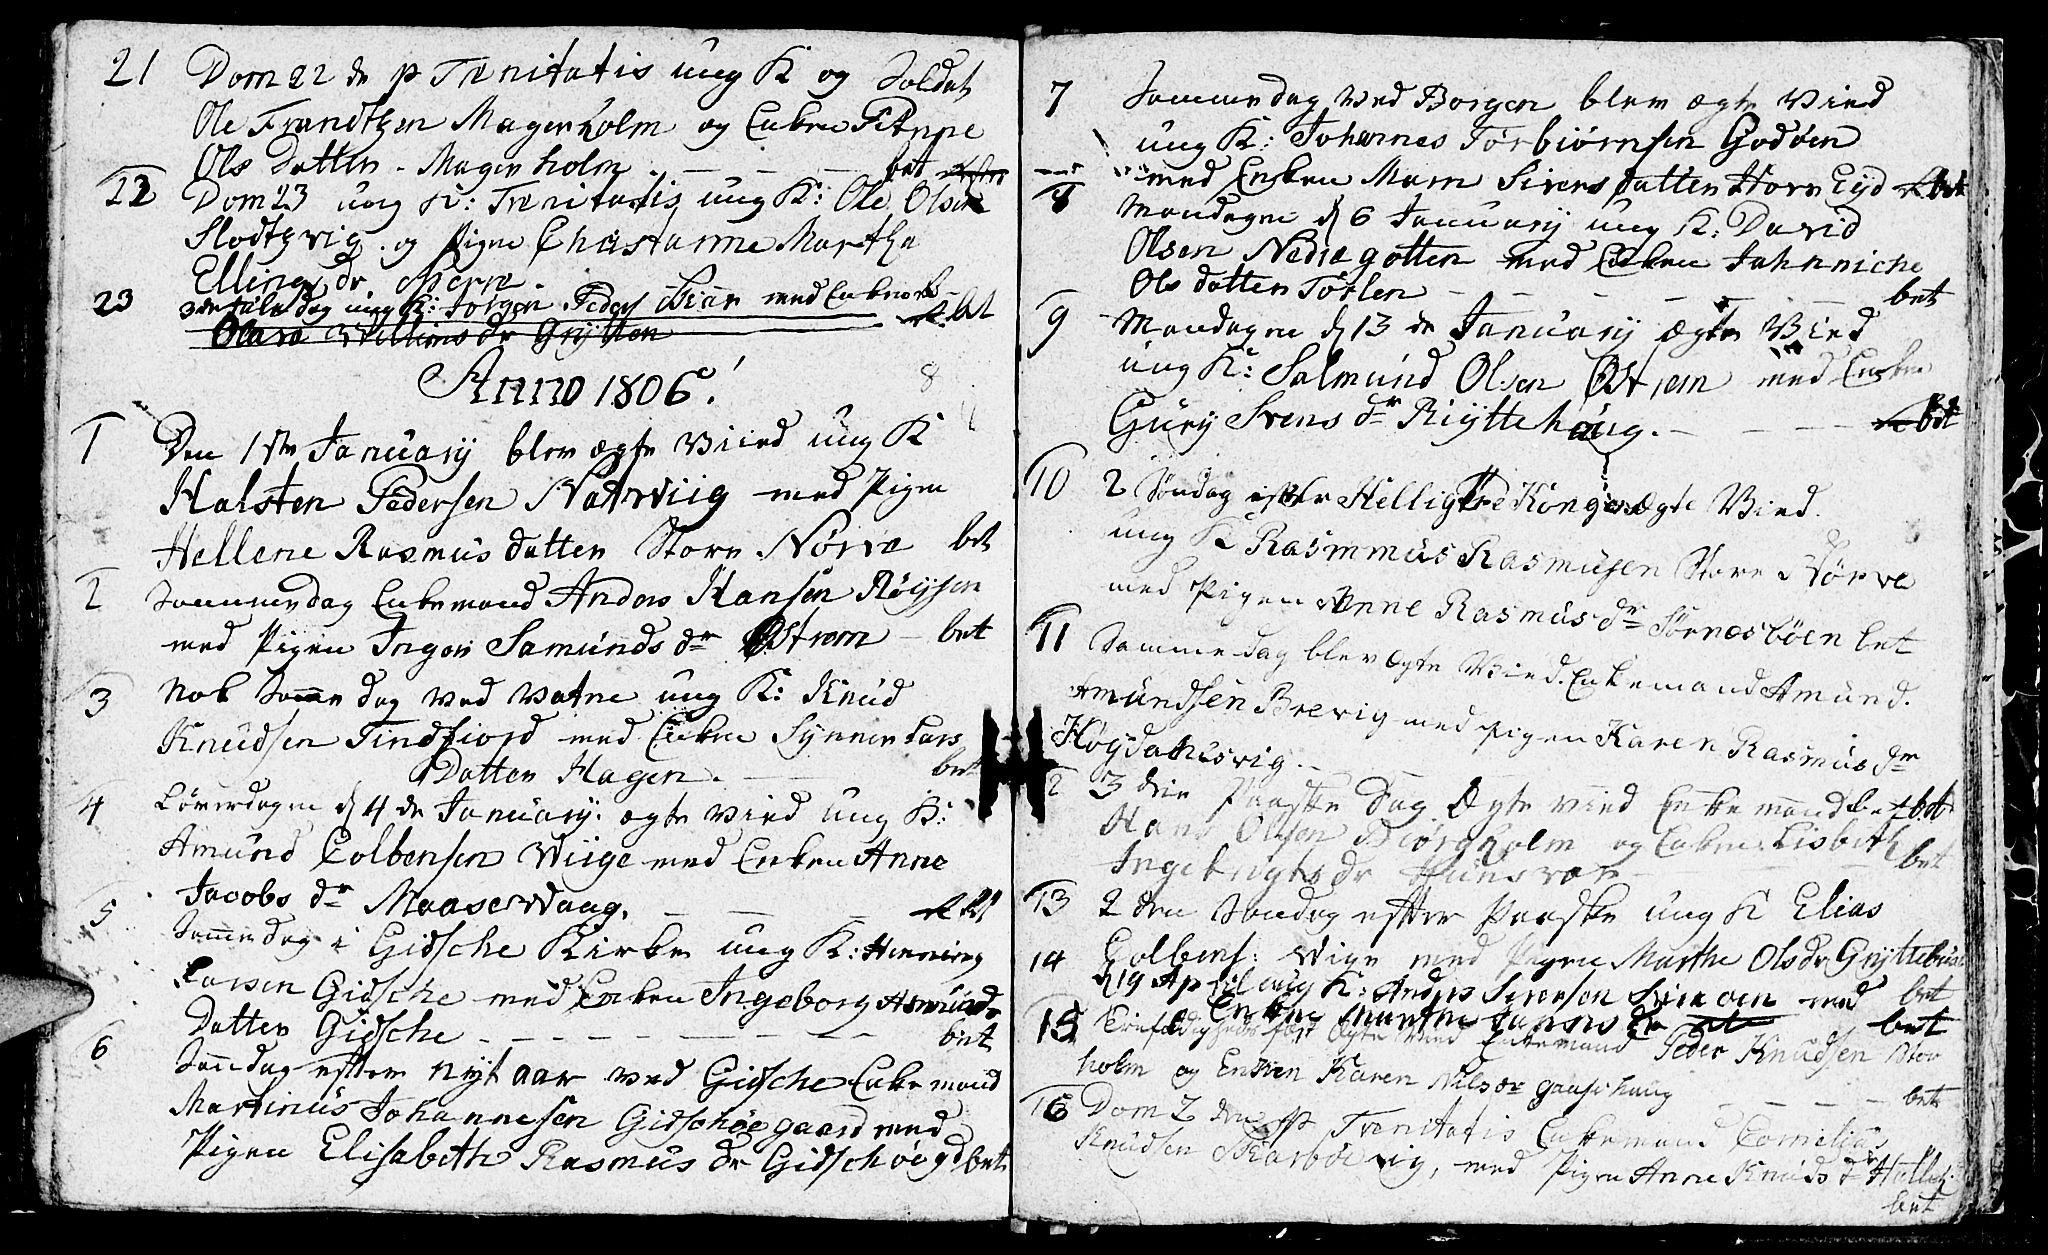 21 Dom 22 de p Trenitatis ung K og Soldat
Ole Frandtzen Magerholm og Enken Pernne
Ols Datter - Magerholm - - - bet
22 Dom 23 ung K: Trenitatis ung K: Ole Olsen
Slodtzvig og Pigen Chrästanne Marthe
Ellings dr Spern
23 ung K: Jørgen Peders med Enken
Olava Willums dr Grytten bet
Anno 1806!
1 Den 1ste January blev ægte Viied ung K
Halsten Pedersen Natrviig med Pigen
Hellene Rasmus datter Store Nørve bet
2 Sammedag Enkemand Anders Hansen Røysen
med Pigen Inger Samunds dr Østrem - bet
3 Nok Samme dag ved Vatne ung K: Knud
Knudsen Tindfiord med Enken Synnen Lars
Datter Hagen. - bet
4 Løverdagen d 4 de January ægte Vied ung K:
Amund Colbensen Wiige med Enken Anne
Jacobs dr Maaserwaag. - - - bet
5 Samedag i Gidsche Kirke ung K: Henning
Larsen Gidsche med Enken Ingeborg Asmunds
Datter Gidsche - - - - - bet
6 Søndag efter nyt aar ved Gidsche Enkemand
Martinus Johannesen Gidschøegaard med
Pigen Elisabeth Rasmus dr Gidschøigd bet
7 Sammedag ved Borgen blev ægte Vied
ung K: Johannes Torbiørnsen Godøen
med Enken Maren Sivers datter Horn Eyd bet
8 Mandagen d 6 January ung K: David
Olsen Nedregotten med Enken Johnniche
Ols datter Tørlen - - - - - bet
9 Mandagen d 13 de January ægte Vied
ung K: Salmund Olsen Østrem med Enken
Gury Svens dr Ryttehoug. - - - bet
10 2 Søndag efter Hellig tre Konger ægte Vied
ung K Rasmmus Rasmusen Store Nørve
med Pigen Anne Rasmus dr Sørnesbøen bet
11 Samme dag blev ægte Vied. Enkemand Amund.
Amundsen Brevig med Pigen Karen Rasmus dr
Høgdahlsvig. -
12 3 die Paaske dag Ægte vied Enkemand bet
Hans Olsen Biørgholm og Enken Lisbeth
Ingebrigts dr Hunsvær - bet
13 2 den Søndag efter Paaske ung K Elias
Colbens: Wige med Pigen Marthe Ols dr Gryttebust
14 d 19 April ung K: Anders Siversen Svinøen med bet
Enken Marthe Jansens dr bet
15 ægte Vied Enkemand Peder Knudsen Stor
holm og Enken Karen Nils dr Gaasehaug - - - bet
16 Dom 2 den p Trenitatis Enkemand Cornelius
Knudsen Skarbøevig, med Pigen Anne Knuds dr
bet